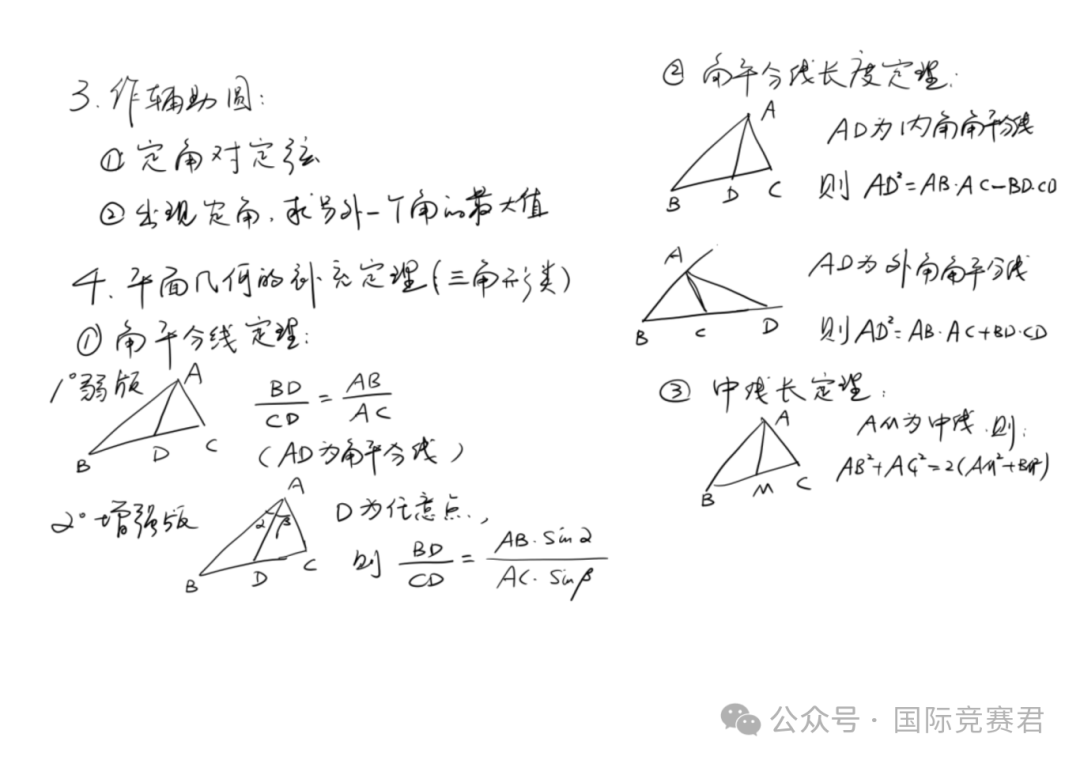 3. 作辅助圆:
① 定角对定弦
② 出现定角, 求另外一个角的最大值
4. 平面几何的补充定理(三角形类)
① 角平分线定理:
1° 弱版
A
B
D
C
BD/CD = AB/AC
(AD为角平分线)
2° 增强版
A
α
β
B
D
C
D为任意点,
则 BD/CD = AB·Sinα/AC·Sinβ
② 角平分线长度定理:
A
B
D
C
AD为内角角平分线
则 AD²=AB·AC-BD·CD
A
B
C
D
AD为外角角平分线
则 AD²=AB·AC+BD·CD
③ 中线长定理:
A
B
M
C
AM为中线.则:
AB²+AC²=2(AM²+BM²)
公众号 · 国际竞赛君